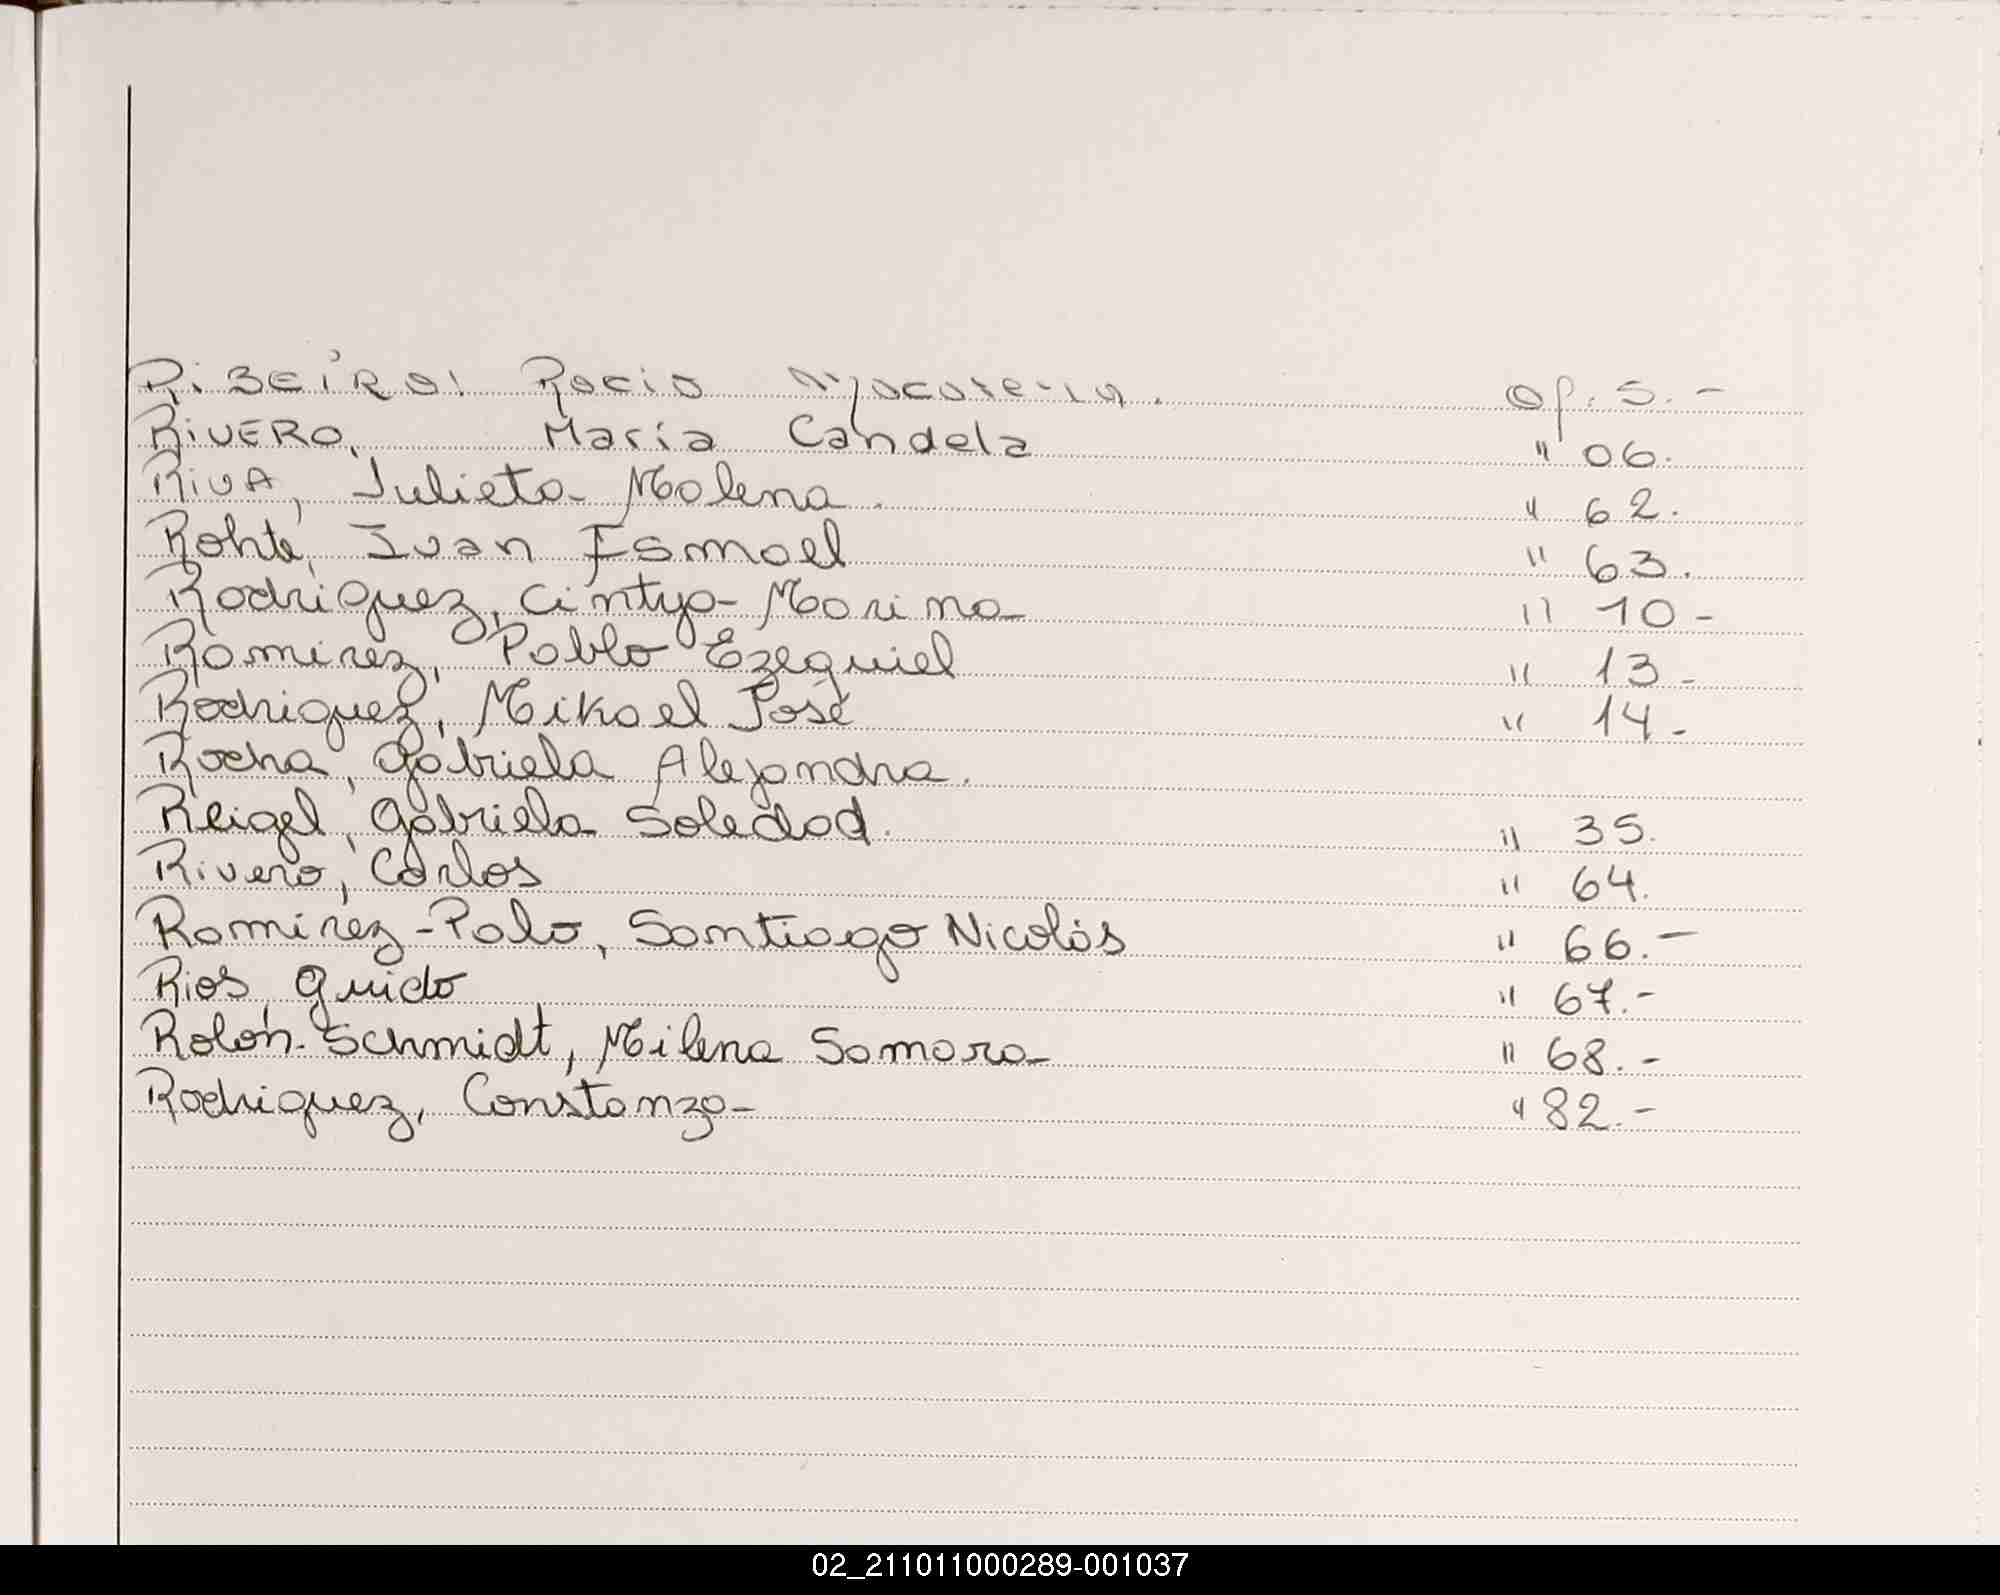 RiBEiRO! Rocio Of. 5. -
RiVERO, María Candela " 06.
RiVA, Julieta Molena. " 62.
Rohte, Ivan Ismael " 63.
Rodriguez, Cintya Marina " 10 -
Ramirez, Pablo Ezequiel " 13 -
Rodriguez, Mikael José " 14 -
Rocha, Gabriela Alejandra.
Reigel, Gabriela Soledad. " 35.
Rivero, Carlos " 64.
Ramirez-Palo, Santiago Nicolás " 66. -
Rios, Guido " 67. -
Rolón-Schmidt, Milena Samara " 68. -
Rodriguez, Constanza " 82. -
02_211011000289-001037